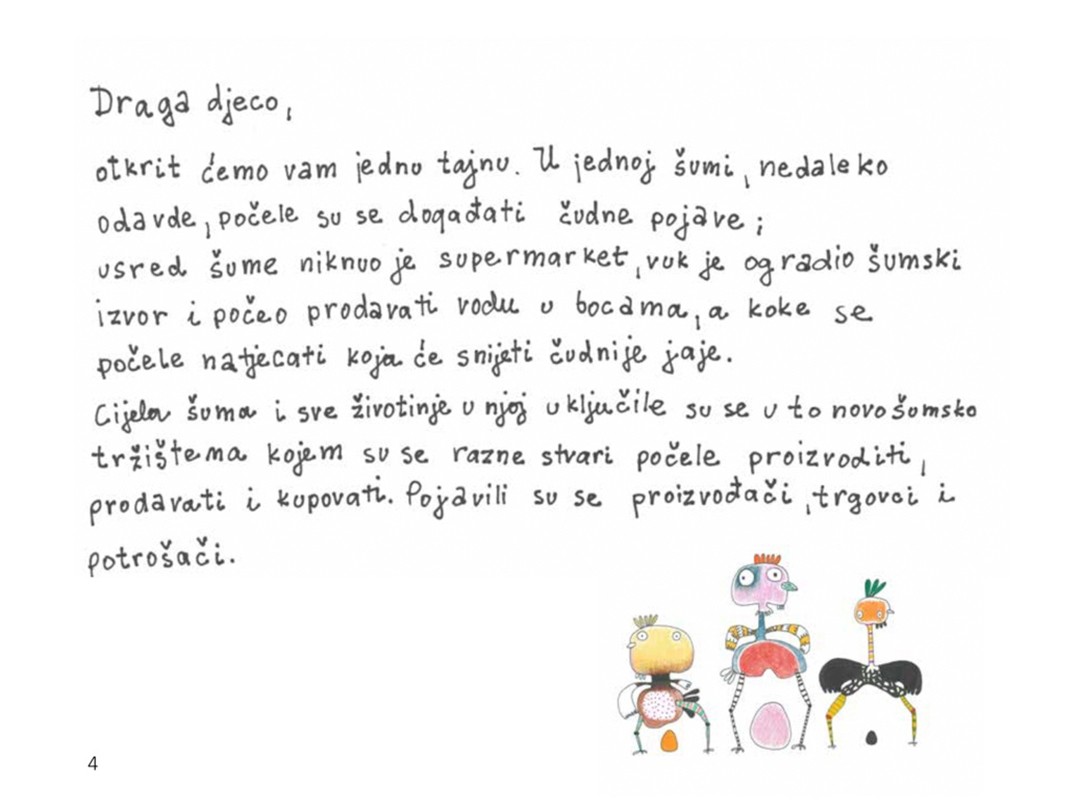 Draga djeco,
otkrit ćemo vam jednu tajnu. U jednoj šumi, nedaleko
odavde, počele su se događati čudne pojave;
usred šume niknuo je supermarket, vuk je ogradio šumski
izvor i počeo prodavati vodu u bocama, a koke se
počele natjecati koja će snijeti čudnije jaje.
Cijela šuma i sve životinje u njoj uključile su se u to novo šumsko
tržište na kojem su se razne stvari počele proizvoditi,
prodavati i kupovati. Pojavili su se proizvođači, trgovci i
potrošači.
4